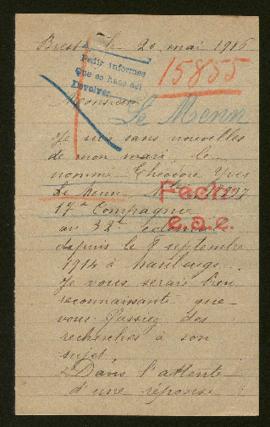 Brest le 20 mai 1916
Pedir informes
que se hace del
Devolver
15855
Monsieur
Le Menn
Je suis sans nouvelles
de mon mari, le
nommé Théodore Yves
Le Menn
Fecha
17e Compagnie
e.a.e.
au 32e colonial
depuis le 7 septembre
1914 à Maubeuge.
Je vous serais bien
reconnaissante que
vous fassiez des
recherches à son
sujet.
Dans l'attente
d'une réponse